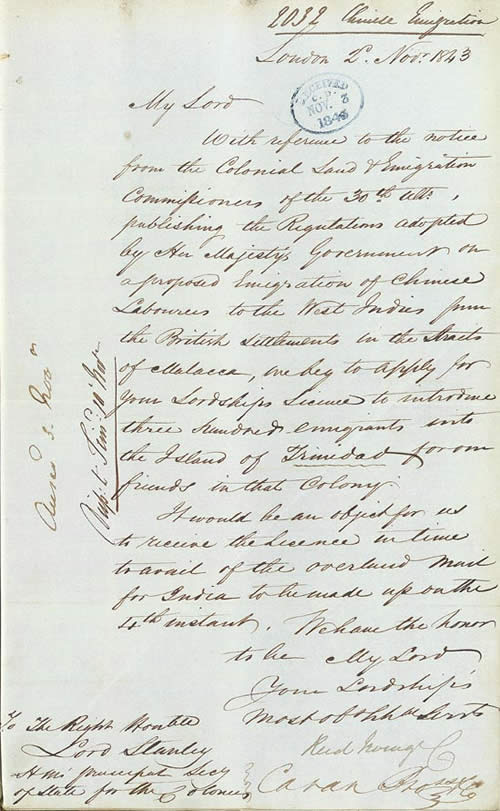 2032 Chinese Emigration
London 2d. Novr. 1843
RECEIVED
C.D.
NOV. 3
1843
My Lord
With reference to the notice
from the Colonial Land & Emigration
Commissioners of the 30th ulto.,
publishing the Regulations adopted
by Her Majesty's Government on
a proposed Emigration of Chinese
Labourers to the West Indies from
the British Settlements in the Straits
of Malacca, we beg to apply for
Your Lordships Licence to introduce
three hundred emigrants into
the Island of Trinidad for our
friends in that Colony.
It would be an object for us
to receive the Licence in time
to avail of the overland Mail
for India to be made up on the
4th instant. We have the honor
to be My Lord
Your Lordship's
Most obt hble Servts
Reid Irving & Co
Cavan Bros & Co
To The Right Honble
Lord Stanley
H M's principal Secy
of State for the Colonies
Ansd 3. Novr